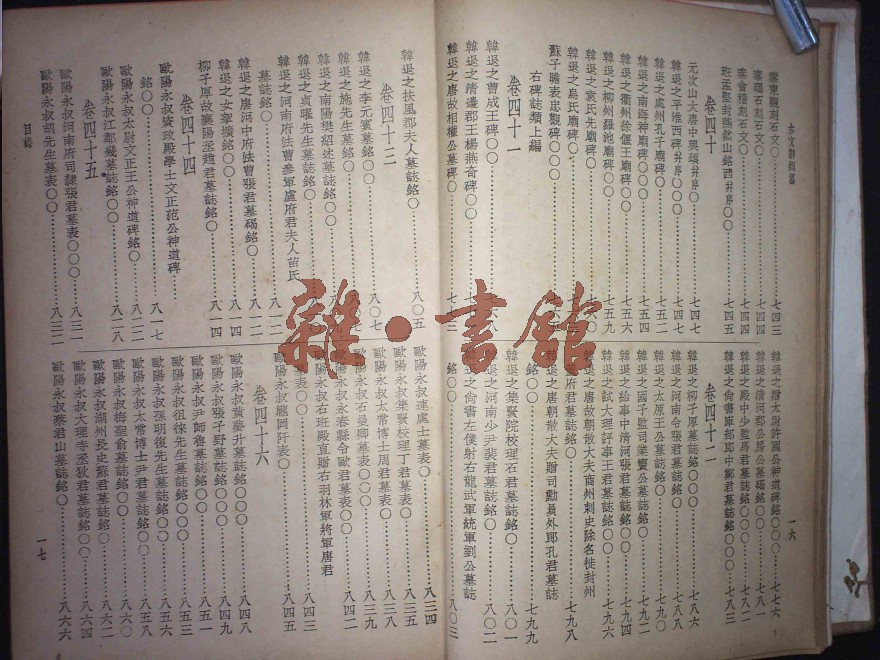 古文辭類纂
秦東觀刻石文○……七四三
秦碣石刻石文○……七四四
秦會稽刻石文○……七四四
班孟堅封燕然山銘並序○○……七四五
卷四十
元次山大唐中興頌 序○……七四七
韓退之平淮西碑並序○○○……七四七
韓退之處州孔子廟碑○……七五一
韓退之南海神廟碑○○○……七五四
韓退之衢州徐偃王廟碑○○○……七五六
韓退之柳州羅池廟碑○○○……七五九
韓退之袁氏先廟碑○……
韓退之烏氏廟碑○……
蘇子瞻表忠觀碑○○○……
右碑誌類上編
卷四十一
韓退之曹成王碑○○……
韓退之清邊郡王楊燕奇碑○○……
韓退之唐故相權公墓碑○……
一六
韓退之贈太尉許國公神道碑銘○○……七七六
韓退之清河郡公房公墓碣銘○○……七八一
韓退之殿中少監馬君墓誌銘○○○……七八二
韓退之尚書庫部郎中鄭君墓誌銘○○○……七八三
卷四十二
韓退之柳子厚墓誌銘○○○……七八六
韓退之河南令張君墓誌銘○○○……七八八
韓退之太原王公墓誌銘○……七九○
韓退之國子監司業竇公墓誌銘○……七九二
韓退之給事中清河張君墓誌銘○○……七九四
韓退之試大理評事王君墓誌銘○○……七九五
韓退之唐故朝散大夫商州刺史除名徙封州
府君墓誌銘○……七九八
韓退之唐朝散大夫贈司勳員外郎孔君墓誌
銘○○……七九九
韓退之集賢院校理石君墓誌銘○○……八○一
韓退之河南少尹裴君墓誌銘○……八○二
韓退之尚書左僕射右龍武軍統軍劉公墓誌
銘○○……八○三
卷四十三
韓退之扶風郡夫人墓誌銘○……八○五
韓退之李元賓墓銘○○……八○七
韓退之施先生墓銘○……
韓退之南陽樊紹述墓誌銘○○……
韓退之貞曜先生墓誌銘○○……
韓退之河南府法曹參軍盧府君夫人苗氏
墓誌銘○……八一一
韓退之唐河中府法曹張君墓碣銘○……八一二
韓退之女挐壙銘○○……八一四
柳子厚故襄陽丞趙君墓誌銘○……八一四
卷四十四
歐陽永叔資政殿學士文正范公神道碑
銘○○……八一七
歐陽永叔太尉文正王公神道碑銘○……八二二
歐陽永叔江鄰幾墓誌銘○○……八二八
卷四十五
歐陽永叔河南府司錄張君墓表○○○……八三一
歐陽永叔胡先生墓表○○……八三二
歐陽永叔連處士墓表○……八三四
歐陽永叔集賢校理丁君墓表○……八三五
歐陽永叔太常博士周君墓表○……八三七
歐陽永叔石曼卿墓表○○○……八三九
歐陽永叔永春縣令歐君墓表○○……八四二
歐陽永叔右班殿直贈右羽林軍將軍唐君
表○○……八四三
歐陽永叔瀧岡阡表○……八四五
卷四十六
歐陽永叔黃夢升墓誌銘○○○……八四八
歐陽永叔張子野墓誌銘○○○……八四九
歐陽永叔尹師魯墓誌銘○○○……八五一
歐陽永叔徂徠先生墓誌銘○○……八五三
歐陽永叔孫明復先生墓誌銘○○……八五五
歐陽永叔太常博士尹君墓誌銘○○……八五八
歐陽永叔梅聖俞墓誌銘○○……八六○
歐陽永叔湖州長史蘇君墓誌銘○○……八六二
歐陽永叔大理寺丞狄君墓誌銘○○……八六四
歐陽永叔蔡君山墓誌銘○○……八六六
目錄
一七
雜・書館